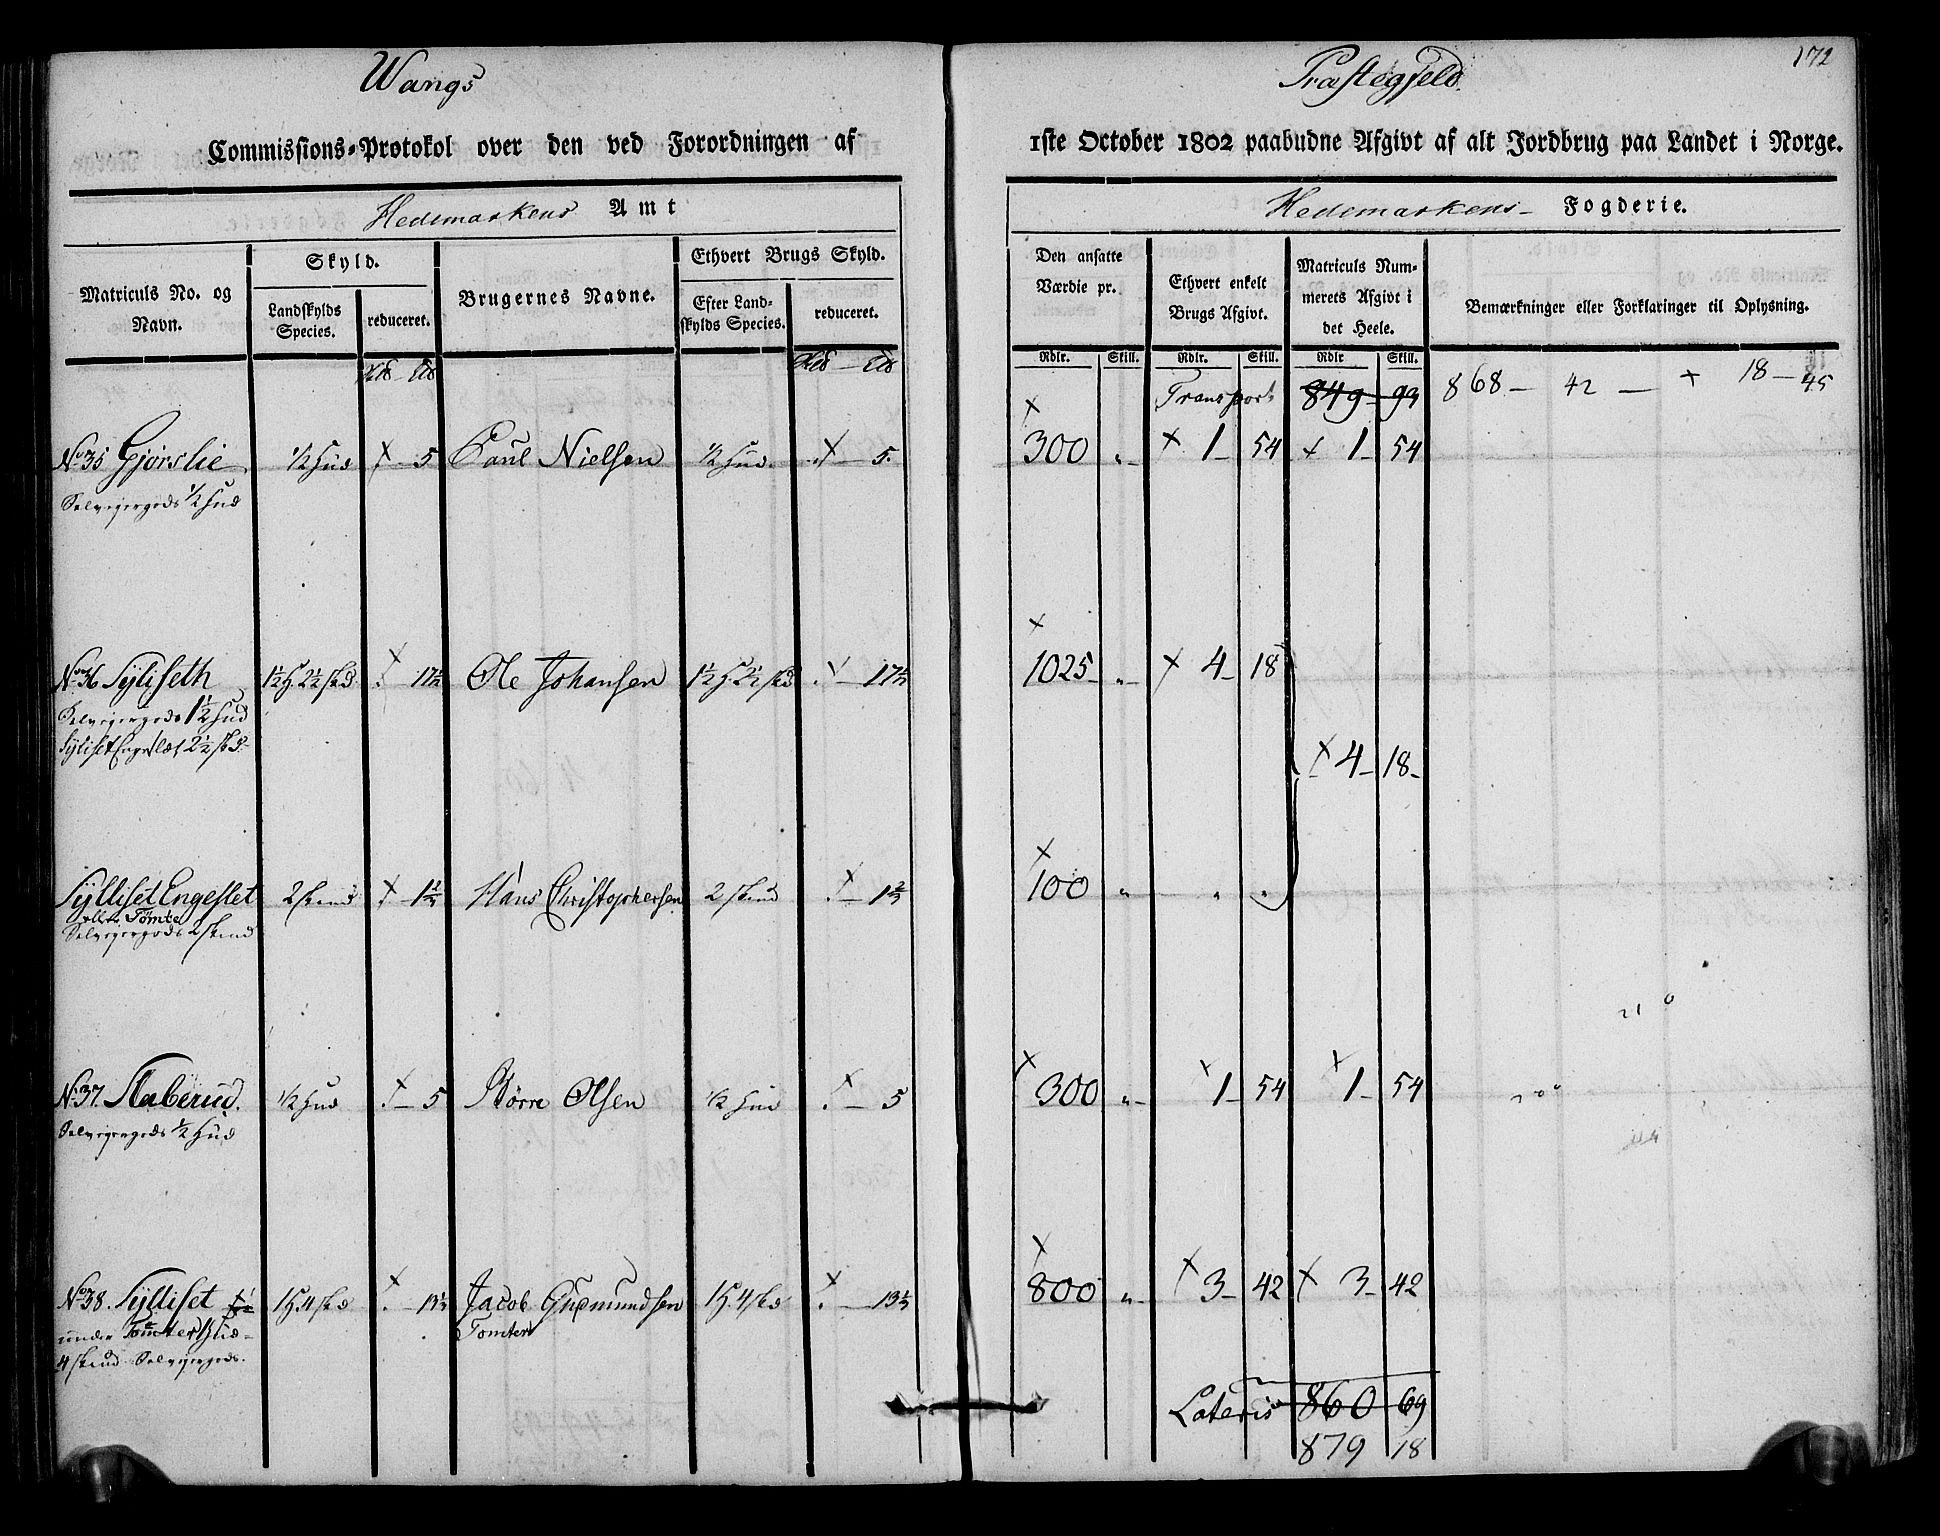 Wangs
Præstegjeld.
172
Commissions-Protokol over den ved Forordningen af
1ste October 1802 paabudne Afgivt af alt Jordbrug paa Landet i Norge.
Hedemarkens Amt
Hedemarkens Fogderie.
Matriculs No. og Navn.
Skyld.
Landskylds Species.
reduceret.
Brugernes Navne.
Ethvert Brugs Skyld.
Efter Landskylds Species.
reduceret.
Den ansatte Værdie pr.
Ethvert enkelt Brugs Afgivt.
Matriculs Nummerets Afgivt i det Heele.
Bemærkninger eller Forklaringer til Oplysning.
Rdlr. Skill. Rdlr. Skill. Rdlr Skill.
Transport 849 - 93 868 - 42 - + 18 - 45
No 35 Gjørslie ½ Hud - 5 Paul Nielsen ½ Hud. - 5. 300 „ 1 - 54 1 - 54
Selveigergods ½ Hud
No 36 Syliseth 1½ H. 2½ skd. - 17½ Ole Johansen 1½ H. 2½ skd - 17½ 1025 „ 4 - 18
Selveigergods 1½ Hud
Syliset Engeslæt 2½ skd.
4 - 18 -
Sylliset Engeslet 2 skind - 1⅔ Hans Christophersen 2 skind - 1⅔ 100 „ „ „
eller Tømte
Selveigergods 2 skind
No 37. Staberud. ½ Hud - 5 Børre Olsen ½ Hud - 5 300 „ 1 - 54 1 - 54
Selveigergods ½ Hud
No 38. Sylliset 1 H. 4 skd - 13⅓ Jacob Gudmundsen 1 H. 4 skd - 13⅓ 800 „ 3 - 42 3 - 42
under Tomter 1 Hud - Tomter
4 skind Selveigergods.
Lateris 860 69
879 18